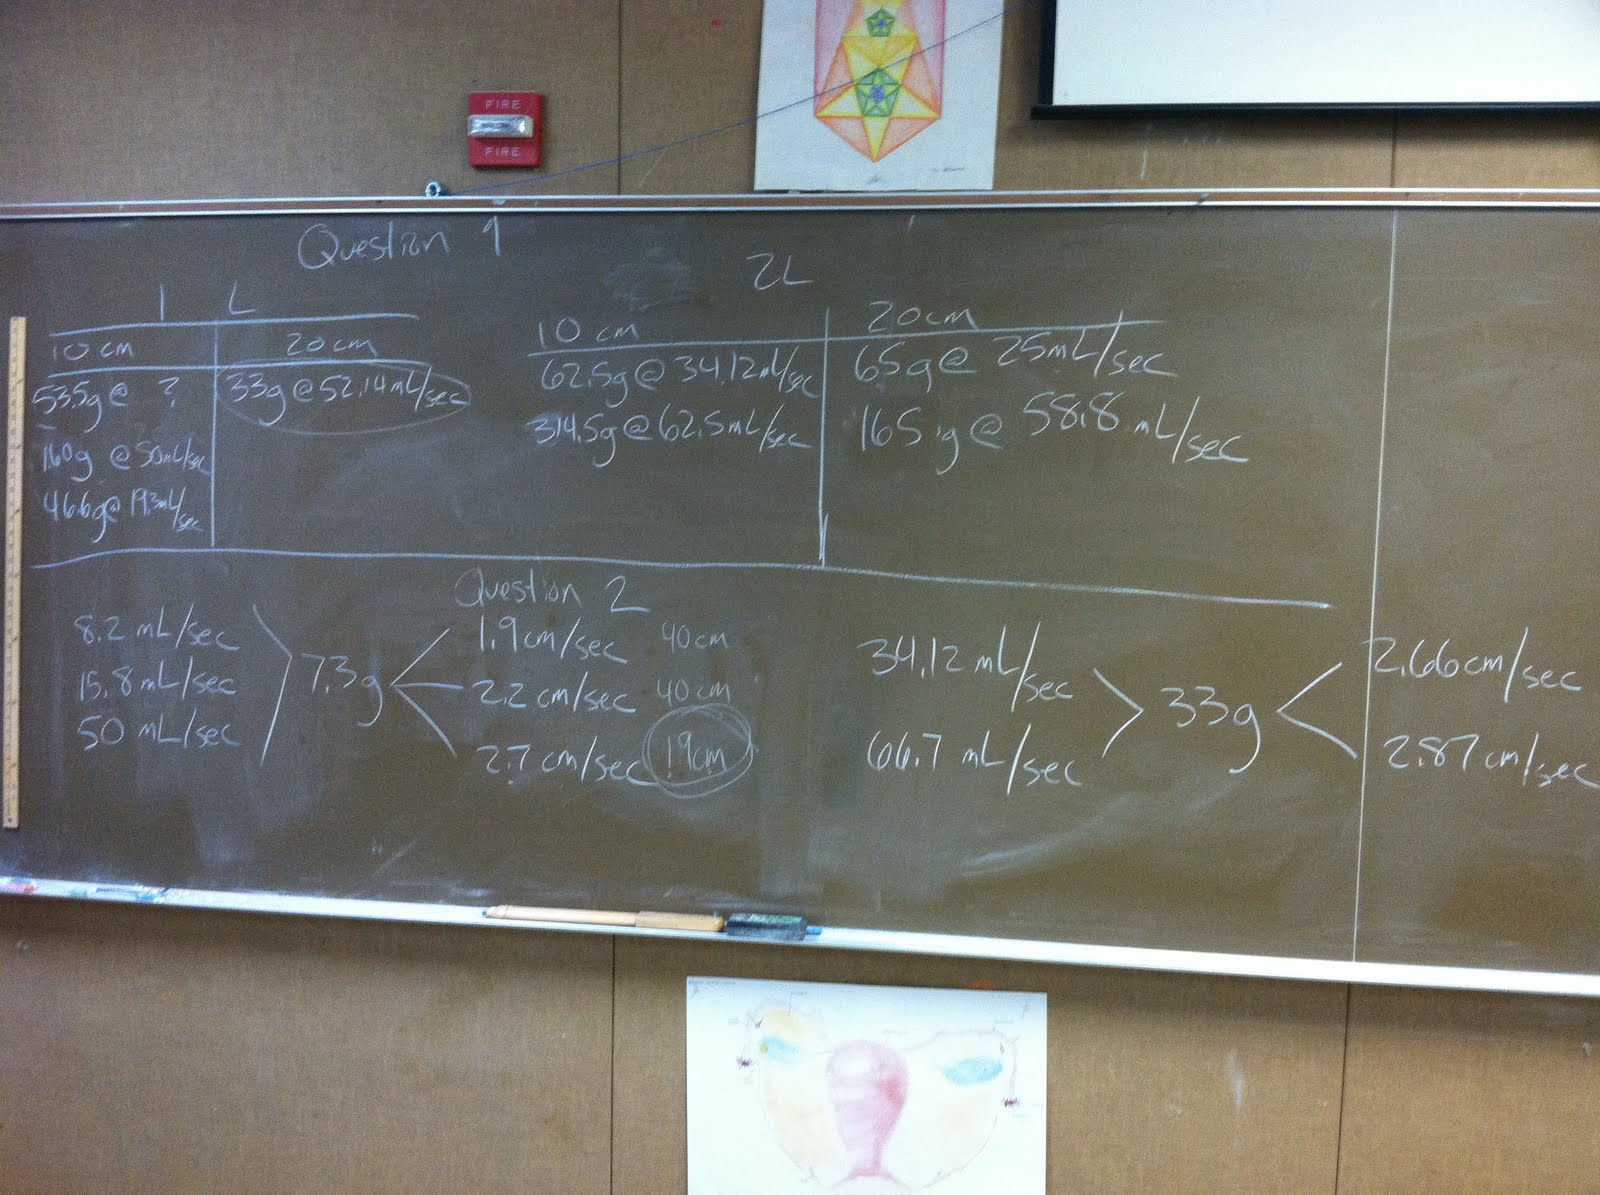 FIRE
FIRE
Question 1
1 L
10 cm 20cm
53.5g @ ? 33g @ 52.14 mL/sec
160g @ 50mL/sec
46.6g@ 19.3mL/sec
2L
10 cm 20cm
62.5g @ 34.12mL/sec 65g @ 25mL/sec
314.5g @ 62.5mL/sec 165g @ 58.8 mL/sec
Question 2
8.2 mL/sec
15.8 mL/sec
50 mL/sec
7.3g
1.9cm/sec 40cm
2.2 cm/sec 40cm
2.7 cm/sec 19cm
34.12 mL/sec
66.7 mL/sec
33g
2.66cm/sec
2.87cm/sec